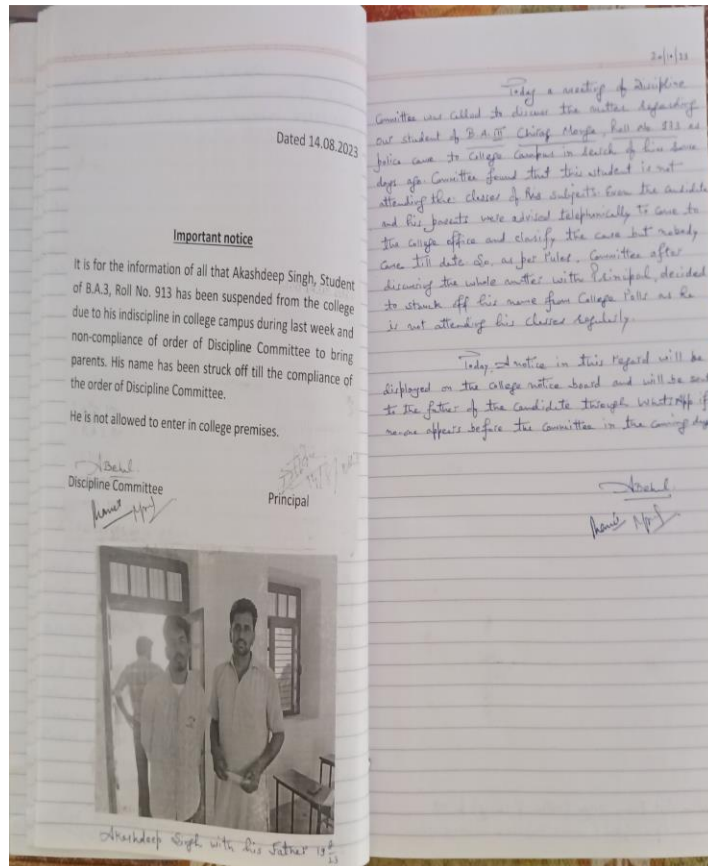 Dated 14.08.2023
Important notice
It is for the information of all that Akashdeep Singh, Student
of B.A.3, Roll No. 913 has been suspended from the college
due to his indiscipline in college campus during last week and
non-compliance of order of Discipline Committee to bring
parents. His name has been struck off till the compliance of
the order of Discipline Committee.
He is not allowed to enter in college premises.
Discipline Committee
Principal
Akashdeep Singh with his Father
Today a meeting of Discipline
Committee was called to discuss the matter regarding
our student of B.A. III Chirag Roll No. 913 as
police came to College Campus in search of him some
days ago. Committee found that this student is not
attending the classes of his subjects. Even the candidate
and his parents were advised telephonically to come to
the college office and clarify the case but nobody
came till date. So, as per rules, Committee after
discussing the whole matter with Principal, decided
to struck off his name from College Rolls as he
is not attending his classes regularly.
Today, A notice in this regard will be
displayed on the college notice board and will be sent
to the father of the candidate through WhatsApp if
appears before the committee in the coming